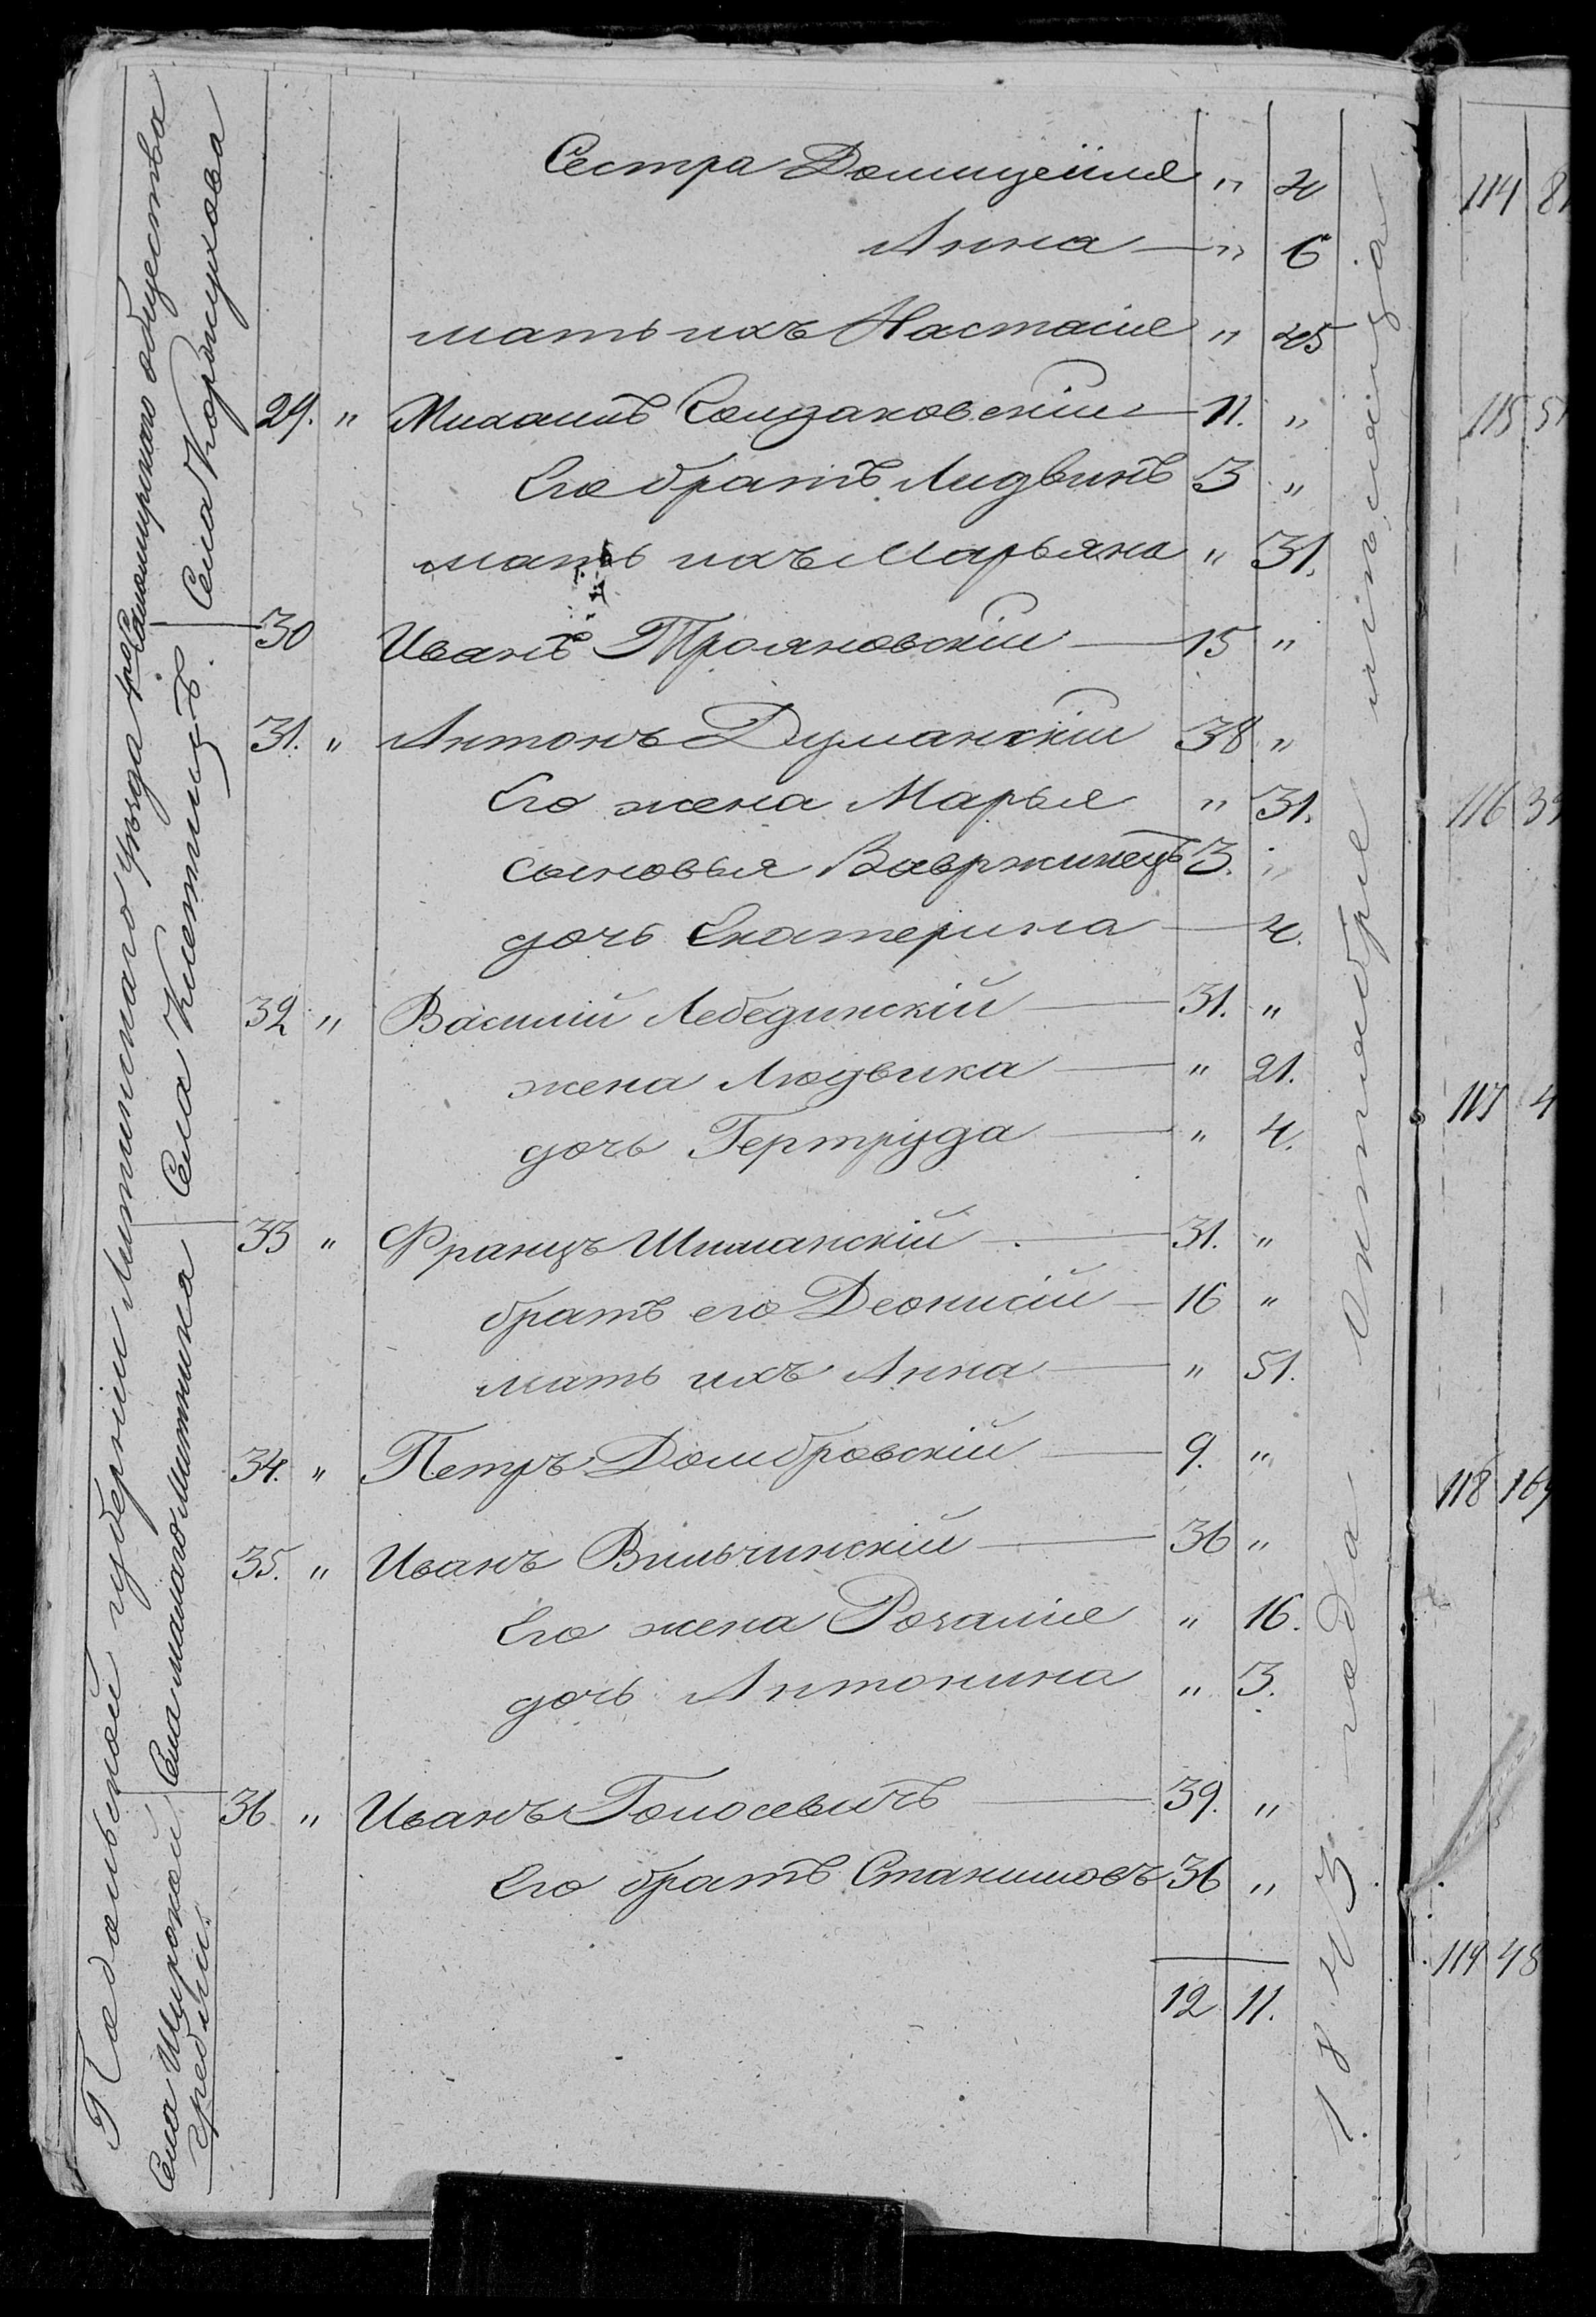 Сестра Домицелия " 4
Анна — " 6
мать ихъ Настасия " 45
29. " Михаилъ Солдаковскій — 11. "
Его братъ Людвикъ 3 "
мать ихъ Марьяна " 31.
30 Иванъ Трояновскій — 15 "
31. " Антонъ Думанскій 38 "
Его жена Марья " 31.
сыновья Вавржинецъ 3. "
дочь Екатерина — 4.
32 " Василій Лебединскій — 31. "
жена Людвика — " 21.
дочь Гертруда — " 4.
33 " Францъ Шиманскій — 31. "
братъ его Деонисій — 16 "
мать ихъ Анна — " 51.
34. " Петръ Домбровскій — 9. "
35. " Иванъ Вильчинскій — 36 "
Его жена Розалия " 16.
дочь Антонина " 3.
36 " Иванъ Голосевичъ — 39. "
Его братъ Станиславъ 36 "
12 11.
Подольской губерніи Литинскаго уѣзда
общества
Села Коржухова
Села Клетищъ.
Села малаго Митника
Села Широкой гребли.
1843 года Октября мѣсяца
114 8
115 5
116 39
117 4
118 169
119 48